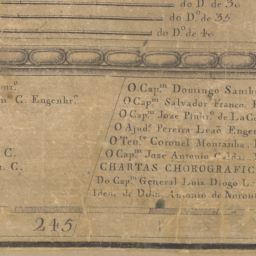 do D. de 30
do D.º de 35
do D.º de 40
C Engenhr.º
C.
C.
O Cap.m Domingo Samb
O Cap.m Salvador Franco.
O Cap.m Joze Pinhr.º de LaC
O Ajud.e Pereira Leaõ Engen
O Ten.te Coronel Montanha.
O Cap.m Joze Antonio Caldas.
CHARTAS CHOROGRAFIC
Do Cap.m General Luis Diogo L.
Idem, de Antonio de Noron
245